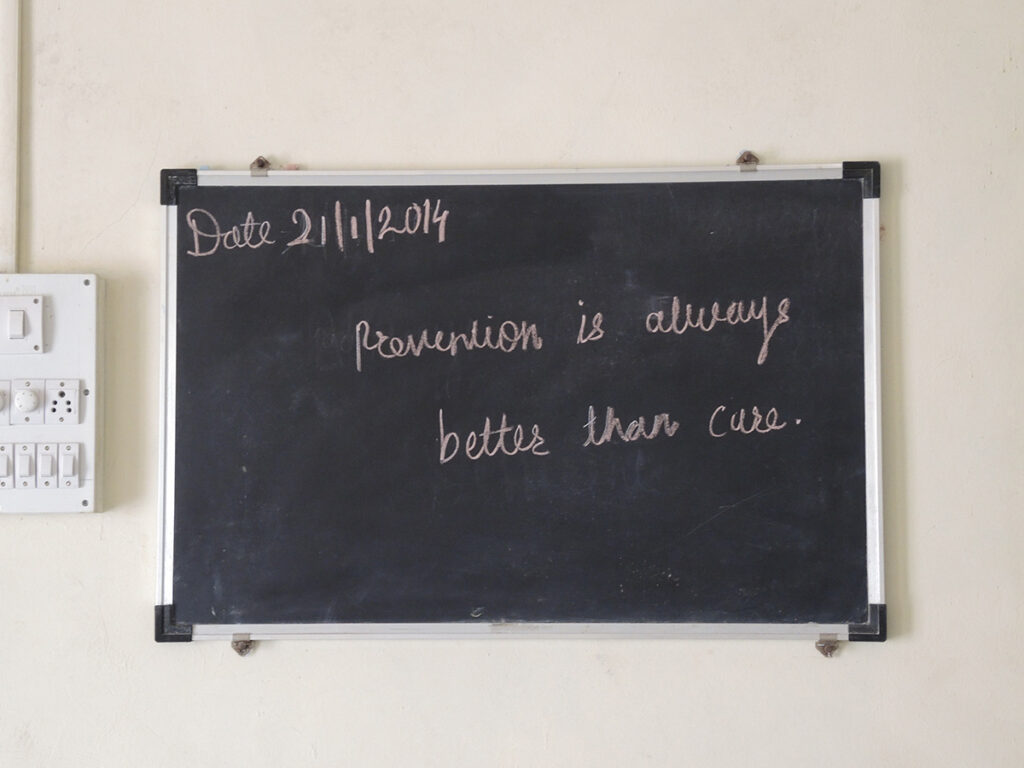 Date 21/1/2014
Prevention is always
better than cure.